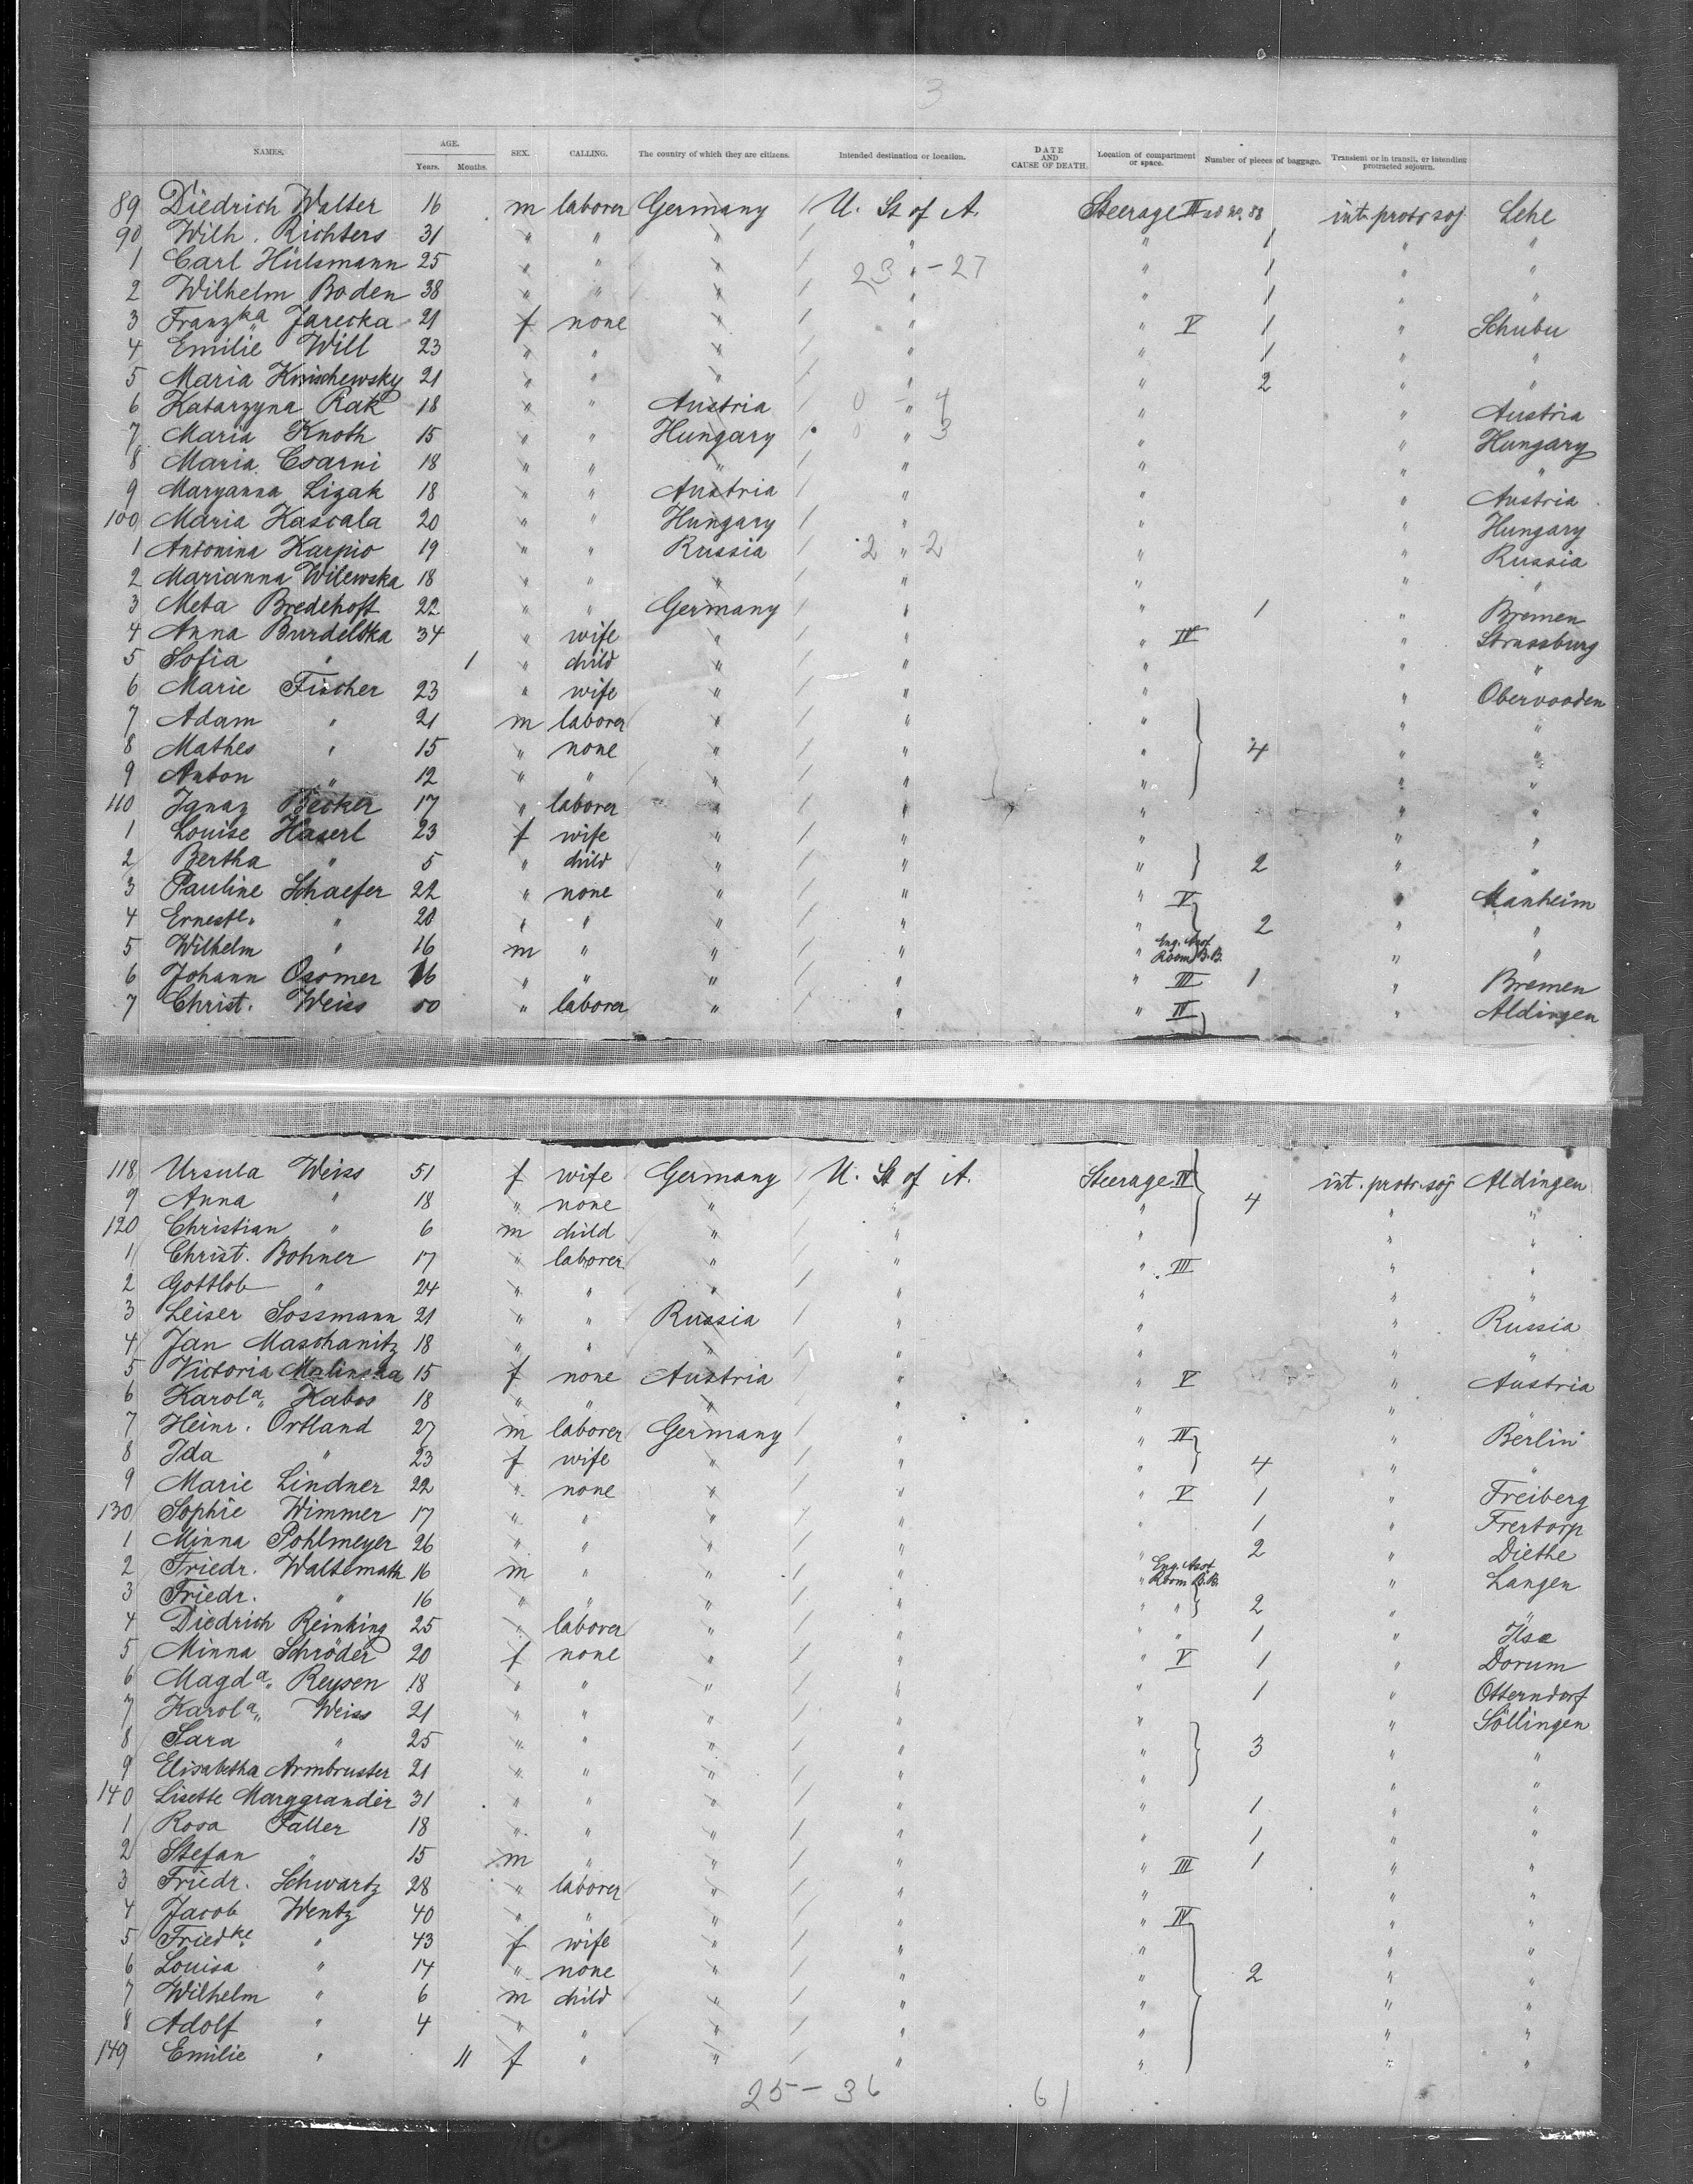 3
NAMES. AGE. Years. Months. SEX. CALLING. The country of which they are citizens. Intended destination or location. DATE AND CAUSE OF DEATH. Location of compartment or space. Number of pieces of baggage. Transient or in transit, or intending protracted sojourn.
89 Diedrich Walter 16 m laborer Germany / U. St of A. Steerage III int. protr soj Lehe
90 Wilh. Richters 31 " " " / " " 1 " "
1 Carl Hülsmann 25 " " " / 23 " - 27 " 1 " "
2 Wilhelm Boden 38 " " " / " " 1 " "
3 Franzka Jarecka 21 f none " / " " V 1 " Schubu
4 Emilie Will 23 " " " / " " 1 " "
5 Maria Knischewsky 21 " " " / " " 2 " "
6 Katarzyna Rak 18 " " Austria / 0 - " 4 " " Austria
7 Maria Knoth 15 " " Hungary / 0 " 3 " " Hungary
8 Maria Csarni 18 " " " / " " " "
9 Maryanna Lizak 18 " " Austria / " " " Austria
100 Maria Kascala 20 " " Hungary / " " " Hungary
1 Antonina Karpio 19 " " Russia / 2 " -2 " " Russia
2 Marianna Wilewska 18 " " " / " " " "
3 Meta Bredehoft 22 " " Germany / " " 1 " Bremen
4 Anna Burdeltka 34 " wife " / " " IV " Strassburg
5 Sofia " 1 " child " / " " " "
6 Marie Fischer 23 " wife " / " " " Obervoaden
7 Adam " 21 m laborer " / " " " "
8 Mathes " 15 " none " / " " 4 " "
9 Anton " 12 " " " / " " " "
110 Ignaz Becker 17 " laborer " / " " " "
1 Louise Haserl 23 f wife " / " " " "
2 Bertha " 5 " child " / " " 2 " "
3 Pauline Schaefer 22 " none " / " " V " Manheim
4 Ernestl. " 20 " " " / " " 2 " "
5 Wilhelm " 16 m " " / " " Eng. Asst Room B.B. " "
6 Johann Osomer 16 " " " / " " III 1 " Bremen
7 Christ. Weiss 50 " laborer " " " IV " Aldingen
118 Ursula Weiss 51 f wife Germany / U. St of A. Steerage IV int. protr. soj Aldingen
9 Anna " 18 " none " / " " 4 " "
120 Christian " 6 m child " / " " " "
1 Christ. Bohner 17 " laborer " / " " III " "
2 Gottlob " 24 " " " / " " " "
3 Leiser Sossmann 21 " " Russia / " " " Russia
4 Jan Maschanitz 18 " " " / " " " "
5 Victoria Malinska 15 f none Austria / " " V " Austria
6 Karola Kabos 18 " " " / " " " "
7 Heinr. Ortland 27 m laborer Germany / " " IV " Berlin
8 Ida " 23 f wife " / " " 4 " "
9 Marie Lindner 22 " none " / " " V 1 " Freiberg
130 Sophie Wimmer 17 " " " / " " 1 " Frertorp
1 Minna Pohlmeyer 26 " " " / " " 2 " Diethe
2 Friedr. Waltemath 16 m " " / " " Eng. Asst Room B.B. " Langen
3 Friedr. " 16 " " " / " " " 2 " "
4 Diedrich Reinking 25 " laborer " / " " " 1 " Ilse
5 Minna Schröder 20 f none " / " " V 1 " Dorum
6 Magda Reysen 18 " " " / " " 1 " Otterndorf
7 Karola Weiss 21 " " " / " " " Söllingen
8 Sara " 25 " " " / " " 3 " "
9 Elisabetha Armbruster 21 " " " / " " " "
140 Lisette Marggrander 31 " " " / " " 1 " "
1 Rosa Faller 18 " " " / " " 1 " "
2 Stefan " 15 m " " / " " III 1 " "
3 Friedr. Schwartz 28 " laborer " / " " " "
4 Jacob Wentz 40 " " " / " " IV " "
5 Friedke " 43 f wife " / " " " "
6 Louisa " 14 " none " / " " 2 " "
7 Wilhelm " 6 m child " / " " " "
8 Adolf " 4 " " " / " " " "
149 Emilie " 11 f " " / " " " "
25 - 36 61